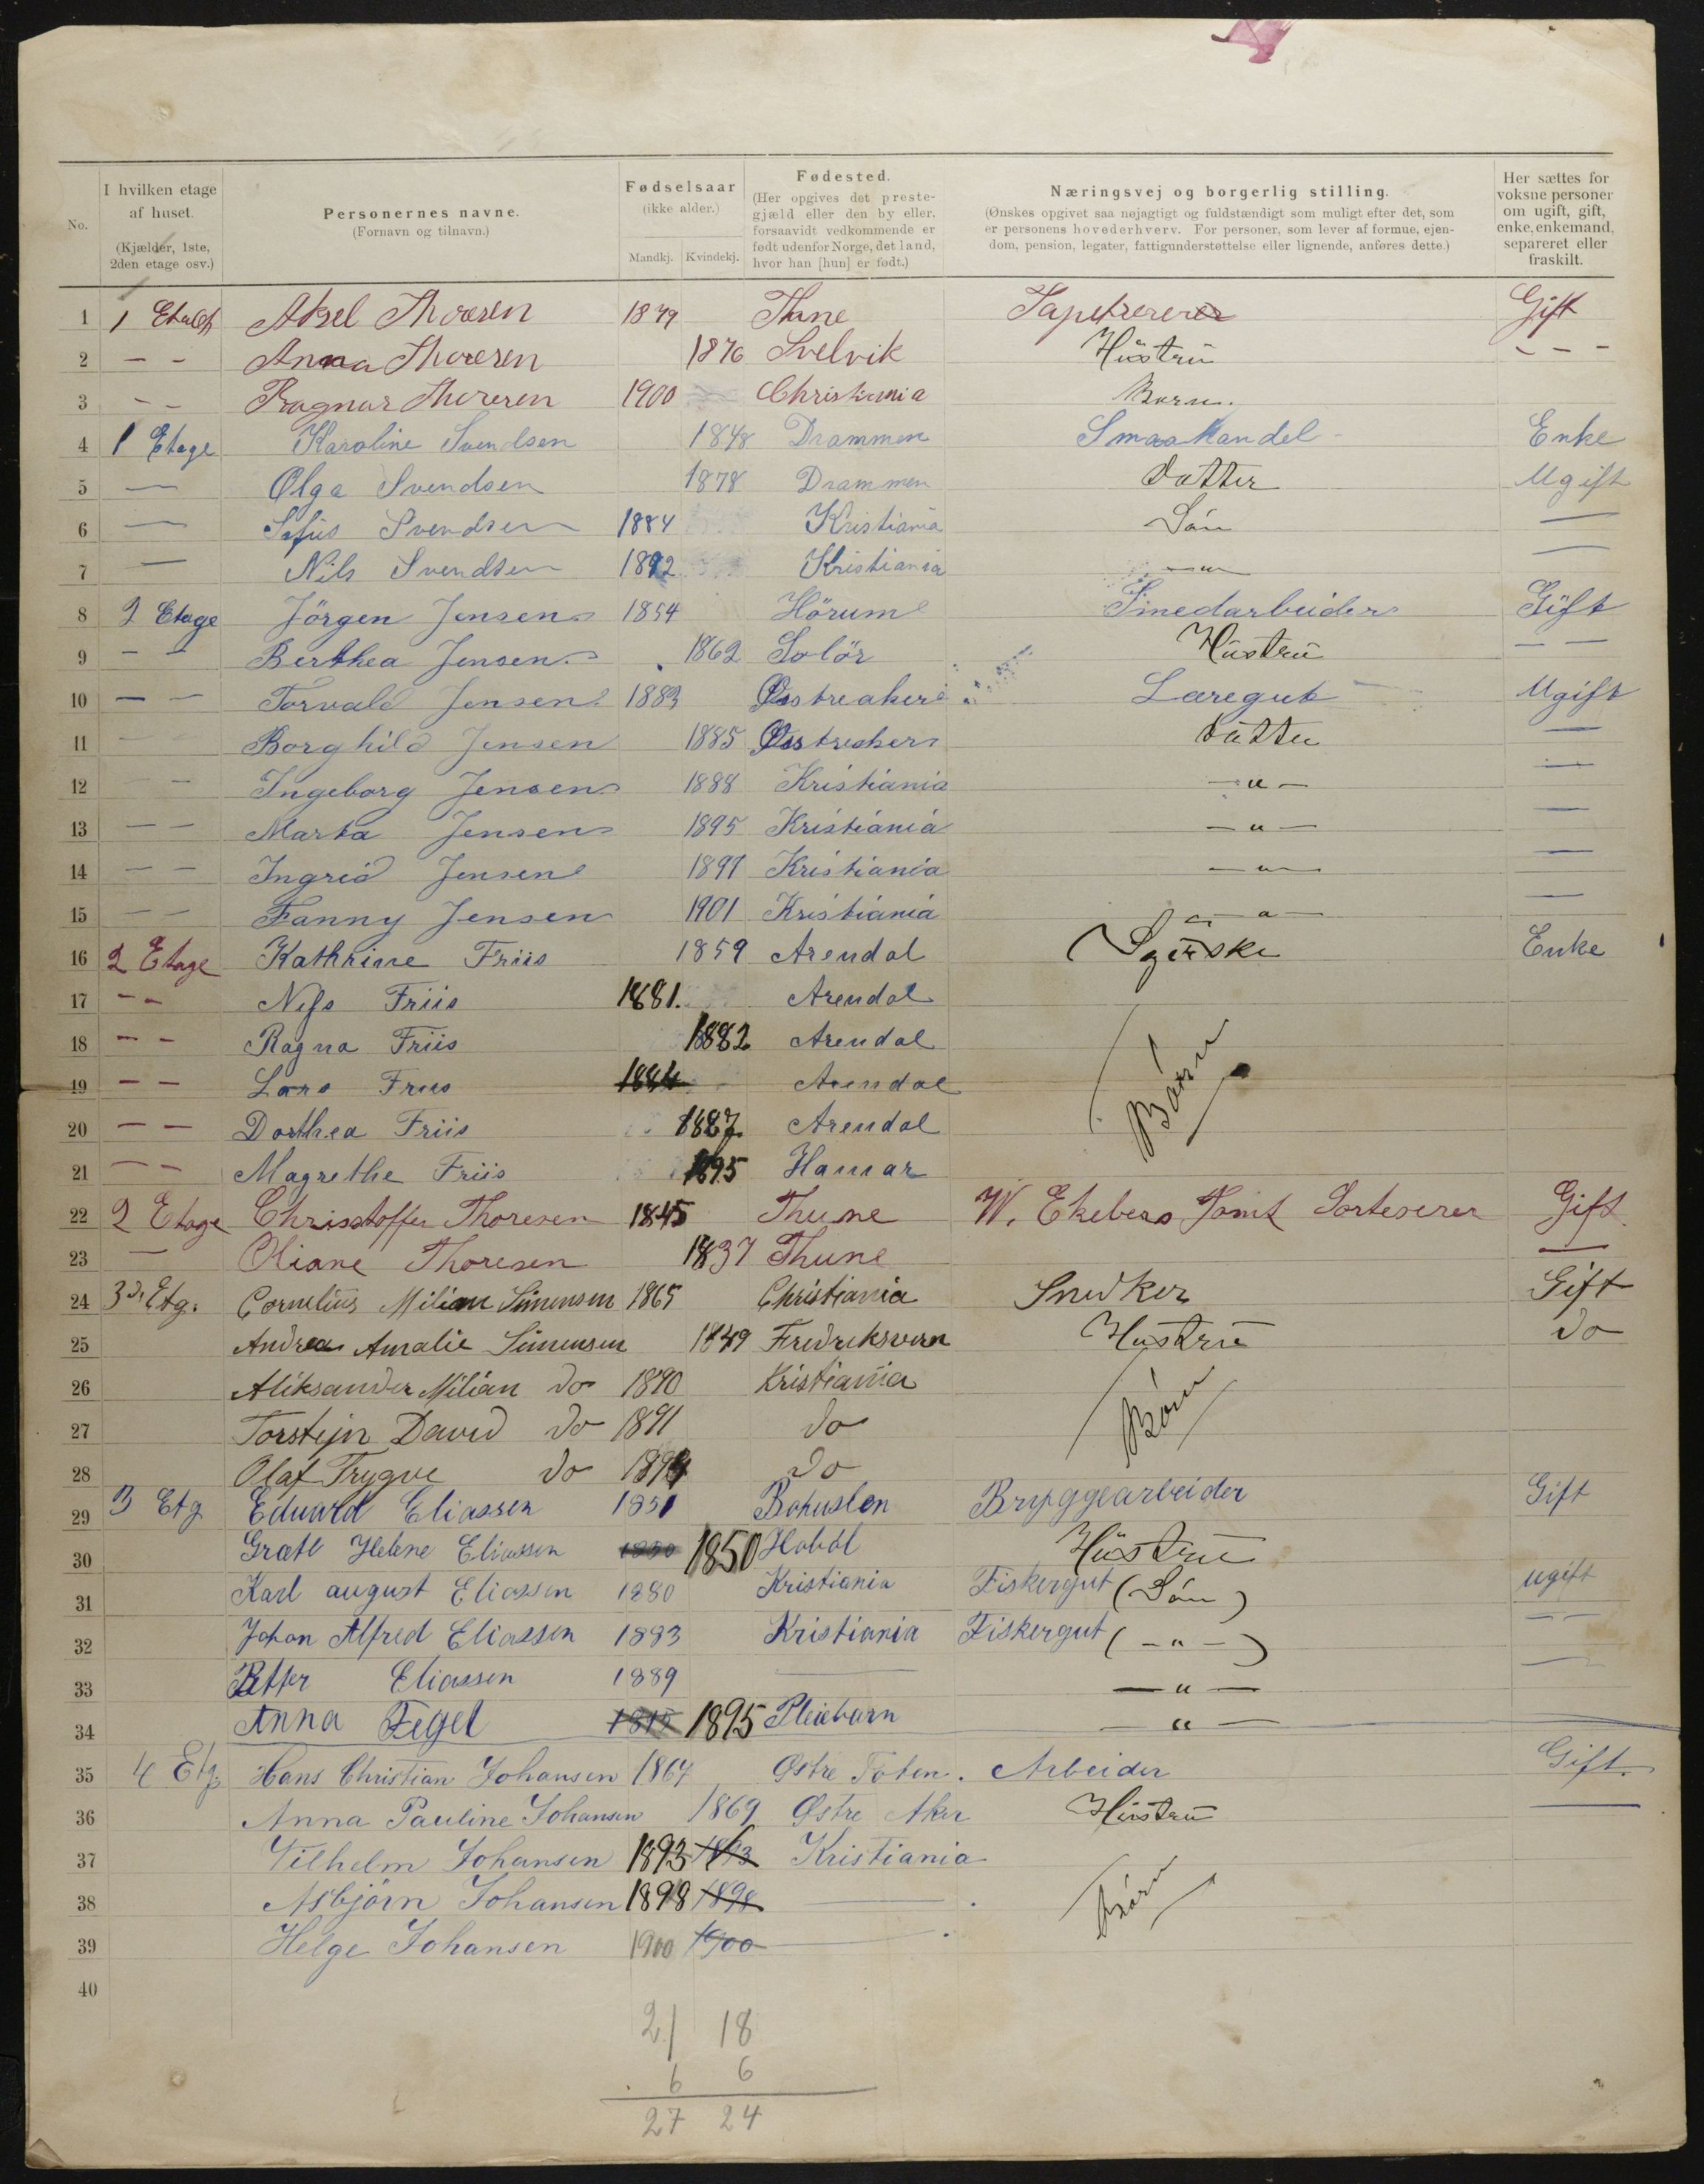 No.
I hvilken etage af huset. (Kjælder, 1ste, 2den etage osv.)
Personernes navne. (Fornavn og tilnavn.)
Fødselsaar (ikke alder.) Mandkj. Kvindekj.
Fødested. (Her opgives det prestegjæld eller den by eller, forsaavidt vedkommende er født udenfor Norge, det land, hvor han [hun] er født.)
Næringsvej og borgerlig stilling. (Ønskes opgivet saa nøjagtigt og fuldstændigt som muligt efter det, som er personens hovederhverv. For personer, som lever af formue, ejendom, pension, legater, fattigunderstøttelse eller lignende, anføres dette.)
Her sættes for voksne personer om ugift, gift, enke, enkemand, separeret eller fraskilt.
1 1 Aksel Thoresen 1879 Thune Tapetserer Gift
2 — — Anna Thoresen 1876 Svelvik Hustru – – –
3 — — Ragnar Thoresen 1900 Christiania Barn.
4 1 Etage Karoline Svendsen 1848 Drammen Smaahandel Enke
5 — Olga Svendsen 1878 Drammen Datter Ugift
6 — Sofus Svendsen 1884 Kristiania Søn —
7 — Nils Svendsen 1892 Kristiania — " — —
8 2 Etage Jörgen Jensen 1854 Hörum Smedarbeider Gift
9 — — Berthea Jensen 1862 Solör Hustru — —
10 — — Torvald Jensen 1883 Østreaker Læregut Ugift
11 — Borghild Jensen 1885 Østreaker Datter —
12 — — Ingeborg Jensen 1888 Kristiania — " — —
13 — — Marta Jensen 1895 Kristiania — " — —
14 — — Ingrid Jensen 1897 Kristiania — " — —
15 — — Fanny Jensen 1901 Kristiania — " — —
16 2 Etage Kathrine Friis 1859 Arendal Syerske Enke
17 — — Nils Friis 1881. Arendal
18 — — Ragna Friis 1882 Arendal Børn
19 — — Lars Friis 1884 Arendal
20 — — Dorthea Friis 1887 Arendal
21 — — Magrethe Friis 1895 Hamar
22 2 Etage Christoffer Thoresen 1845 Thune W. Ekebers Tomt Sorterer Gift
23 — Oliane Thoresen 1837 Thune —
24 3die Etg. Cornelius Milian Simensen 1865 Christiania Snedker Gift
25 Andrea Amalie Simensen 1849 Fredriksvern Hustru do
26 Aleksander Milian do 1890 Kristiania
27 Torstejn David do 1891 do Børn
28 Olaf Trygve do 1894 do
29 3 Etg Edvard Eliassen 1851 Bohuslen Bryggearbeider Gift
30 Grete Helene Eliassen 1850 1850 Hobøl Hustru
31 Karl august Eliassen 1880 Kristiania Fiskergut (Søn) ugift
32 Johan Alfred Eliassen 1883 Kristiania Fiskergut ( — " — ) — —
33 Petter Eliassen 1889 — — " — —
34 Anna Fegel 1895 1895 Pleiebarn — " —
35 4 Etg Hans Christian Johansen 1864 Østre Toten. Arbeider Gift.
36 Anna Pauline Johansen 1869 Østre Aker Hustru —
37 Vilhelm Johansen 1893 1893 Kristiania
38 Asbjørn Johansen 1898 1898 — Børn
39 Helge Johansen 1900 1900 —
40
21 18
6 6
27 24